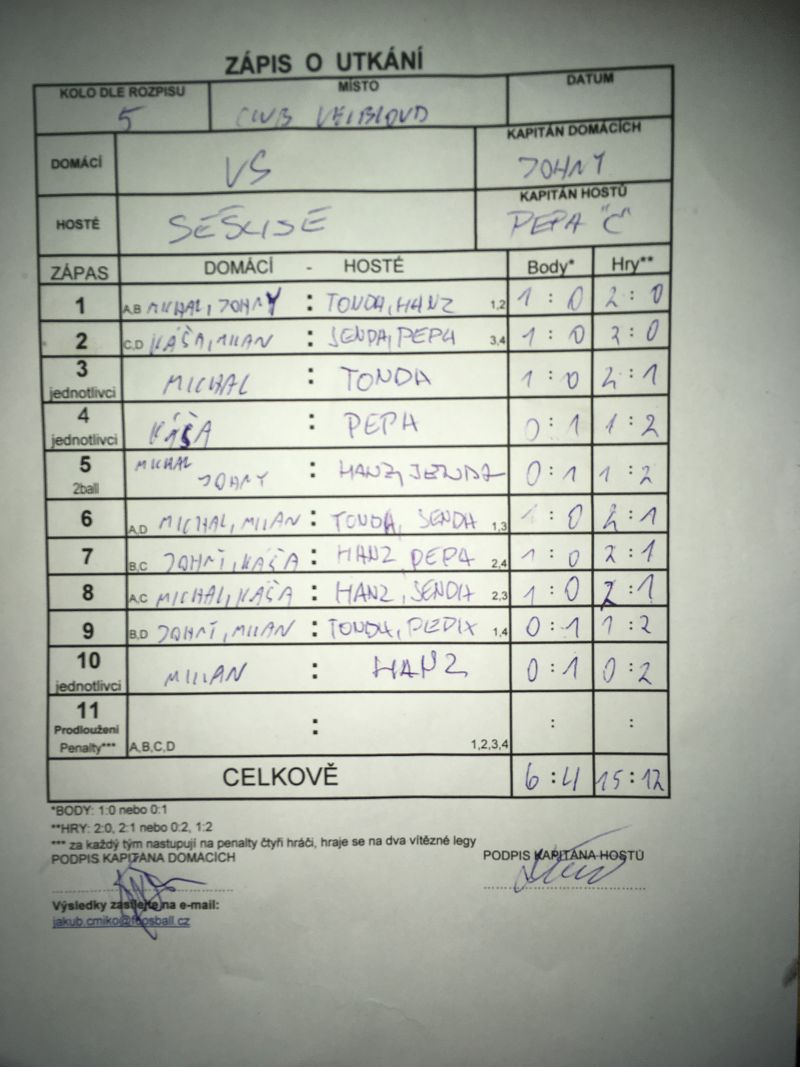 ZÁPIS O UTKÁNÍ
KOLO DLE ROZPISU MÍSTO DATUM
5 CLUB VELBLOUD
DOMÁCÍ VS KAPITÁN DOMÁCÍCH
JOHNY
HOSTÉ KAPITÁN HOSTŮ
PEPA "Č"
ZÁPAS DOMÁCÍ - HOSTÉ Body* Hry**
1 A,B MICHAL, JOHNY : TONDA, HANZ 1,2 1 : 0 2 : 0
2 C,D KÁŠA, MILAN : JENDA, PEPA 3,4 1 : 0 2 : 0
3 jednotlivci MICHAL : TONDA 1 : 0 2 : 1
4 jednotlivci KÁŠA : PEPA 0 : 1 1 : 2
5 2ball MICHAL JOHNY : HANZ, JENDA 0 : 1 1 : 2
6 A,D MICHAL, MILAN : TONDA, JENDA 1,3 1 : 0 2 : 1
7 B,C JOHNY, KÁŠA : HANZ PEPA 2,4 1 : 0 2 : 1
8 A,C MICHAL, KÁŠA : HANZ, JENDA 2,3 1 : 0 2 : 1
9 B,D JOHNY, MILAN : TONDA, 1,4 0 : 1 1 : 2
10 jednotlivci MILAN : HANZ 0 : 1 0 : 2
11 Prodloužení Penalty*** A,B,C,D : 1,2,3,4 : :
CELKOVĚ 6 : 4 15 : 12
*BODY: 1:0 nebo 0:1
**HRY: 2:0, 2:1 nebo 0:2, 1:2
*** za každý tým nastupují na penalty čtyři hráči, hraje se na dva vítězné legy
PODPIS KAPITÁNA DOMÁCÍCH PODPIS KAPITÁNA HOSTŮ
Výsledky zasílejte na e-mail:
jakub.cmiko@foosball.cz